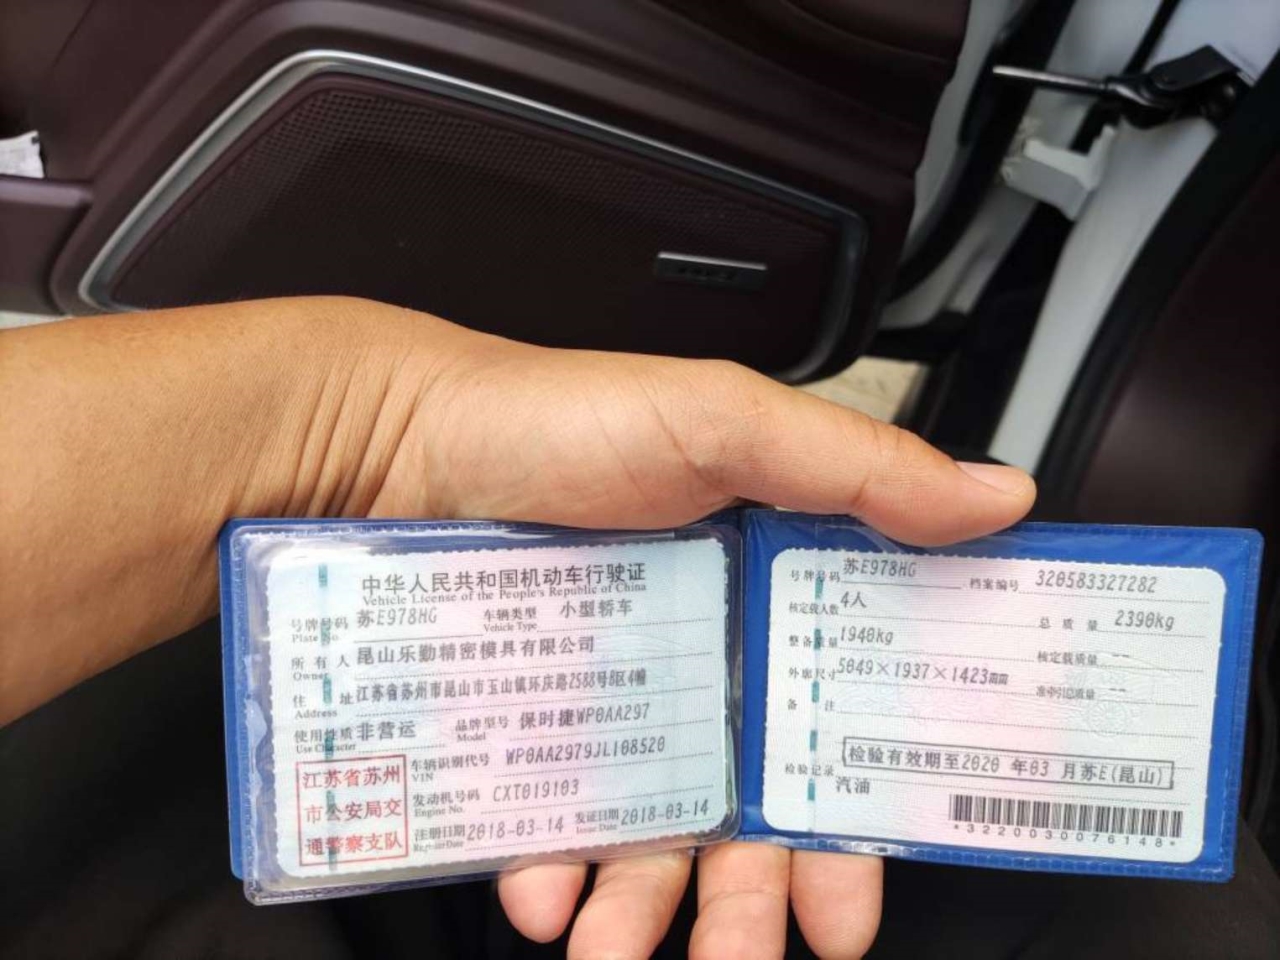 中华人民共和国机动车行驶证
Vehicle License of the People's Republic of China
号牌号码 苏E978HG 车辆类型 小型轿车
Plate No. Vehicle Type
所有人 昆山乐勤精密模具有限公司
Owner
住址 江苏省苏州市昆山市玉山镇环庆路2588号8区4幢
Address
使用性质 非营运 品牌型号 保时捷WP0AA297
Use Character Model
江苏省苏州
市公安局交
通警察支队
车辆识别代号 WP0AA2979JL108520
VIN
发动机号码 CXT019103
Engine No.
注册日期 2018-03-14 发证日期 2018-03-14
Register Date Issue Date
号牌号码 苏E978HG 档案编号 320583327282
核定载人数 4人 总质量 2390kg
整备质量 1940kg 核定载质量 --
外廓尺寸 5049×1937×1423mm 准牵引总质量 --
备注
检验有效期至2020年03月苏E(昆山)
检验记录
汽油
*3220030076148*